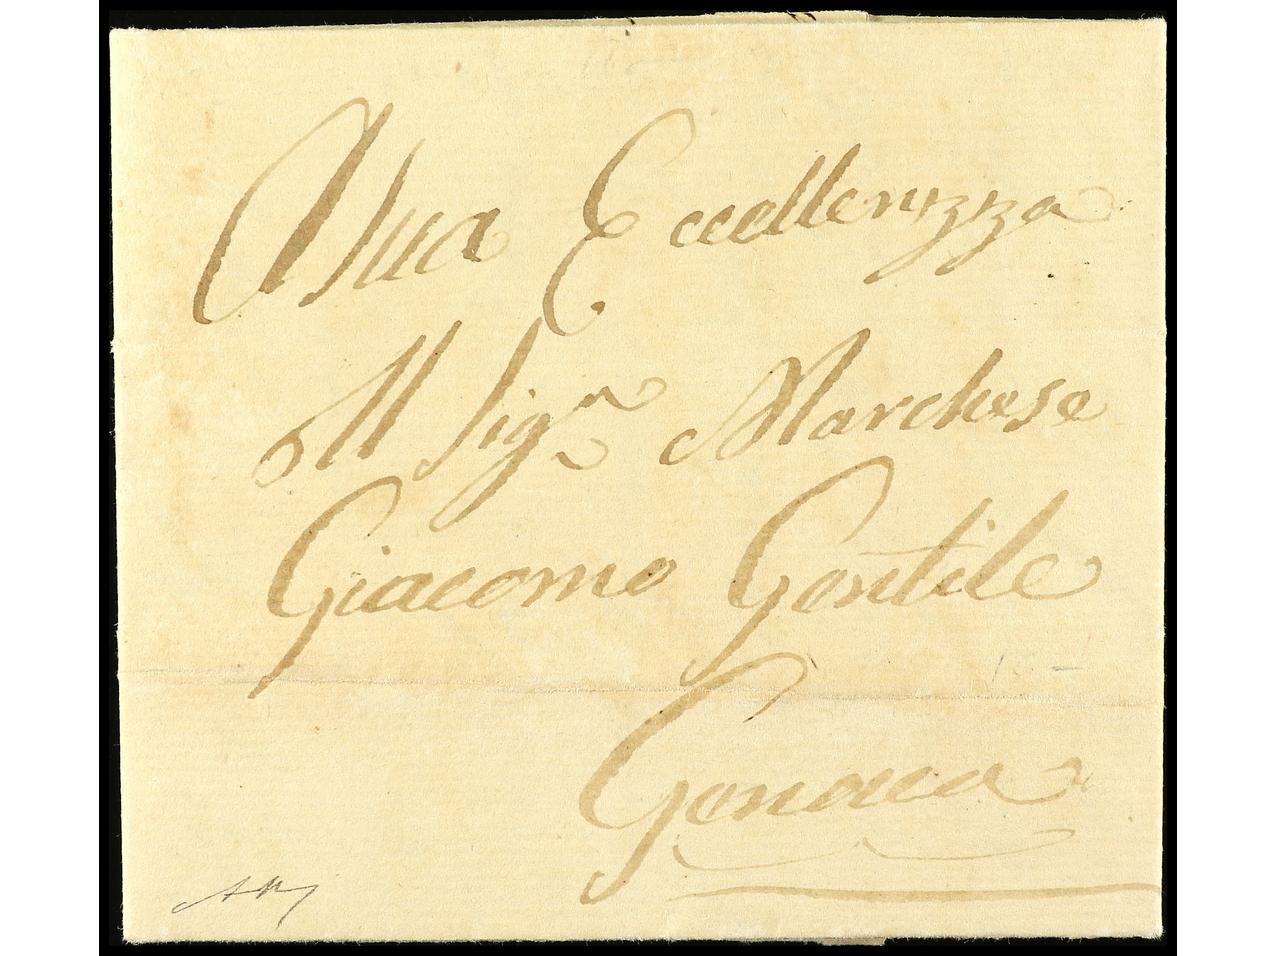 Sua Eccellenzza
Il Sigr. Marchese
Giacomo Gentile
Genova